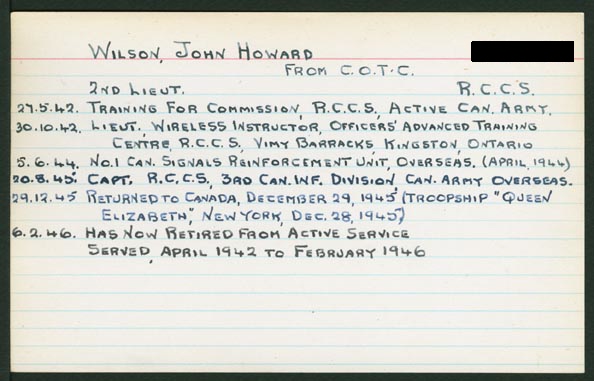 WILSON, JOHN HOWARD
FROM C.O.T.C.
2ND LIEUT. R.C.C.S.
27.5.42. TRAINING FOR COMMISSION, R.C.C.S, ACTIVE CAN. ARMY.
30.10.42. LIEUT, WIRELESS INSTRUCTOR, OFFICERS' ADVANCED TRAINING
CENTRE, R.C.C.S, VIMY BARRACKS, KINGSTON, ONTARIO
5.6.44. NO.1 CAN. SIGNALS REINFORCEMENT UNIT, OVERSEAS. (APRIL, 1944)
20.8.45. CAPT. R.C.C.S, 3RD CAN. INF. DIVISION, CAN. ARMY OVERSEAS.
29.12.45 RETURNED TO CANADA, DECEMBER 29, 1945 (TROOPSHIP "QUEEN
ELIZABETH", NEW YORK, DEC. 28, 1945)
6.2.46. HAS NOW RETIRED FROM ACTIVE SERVICE
SERVED, APRIL 1942 TO FEBRUARY 1946